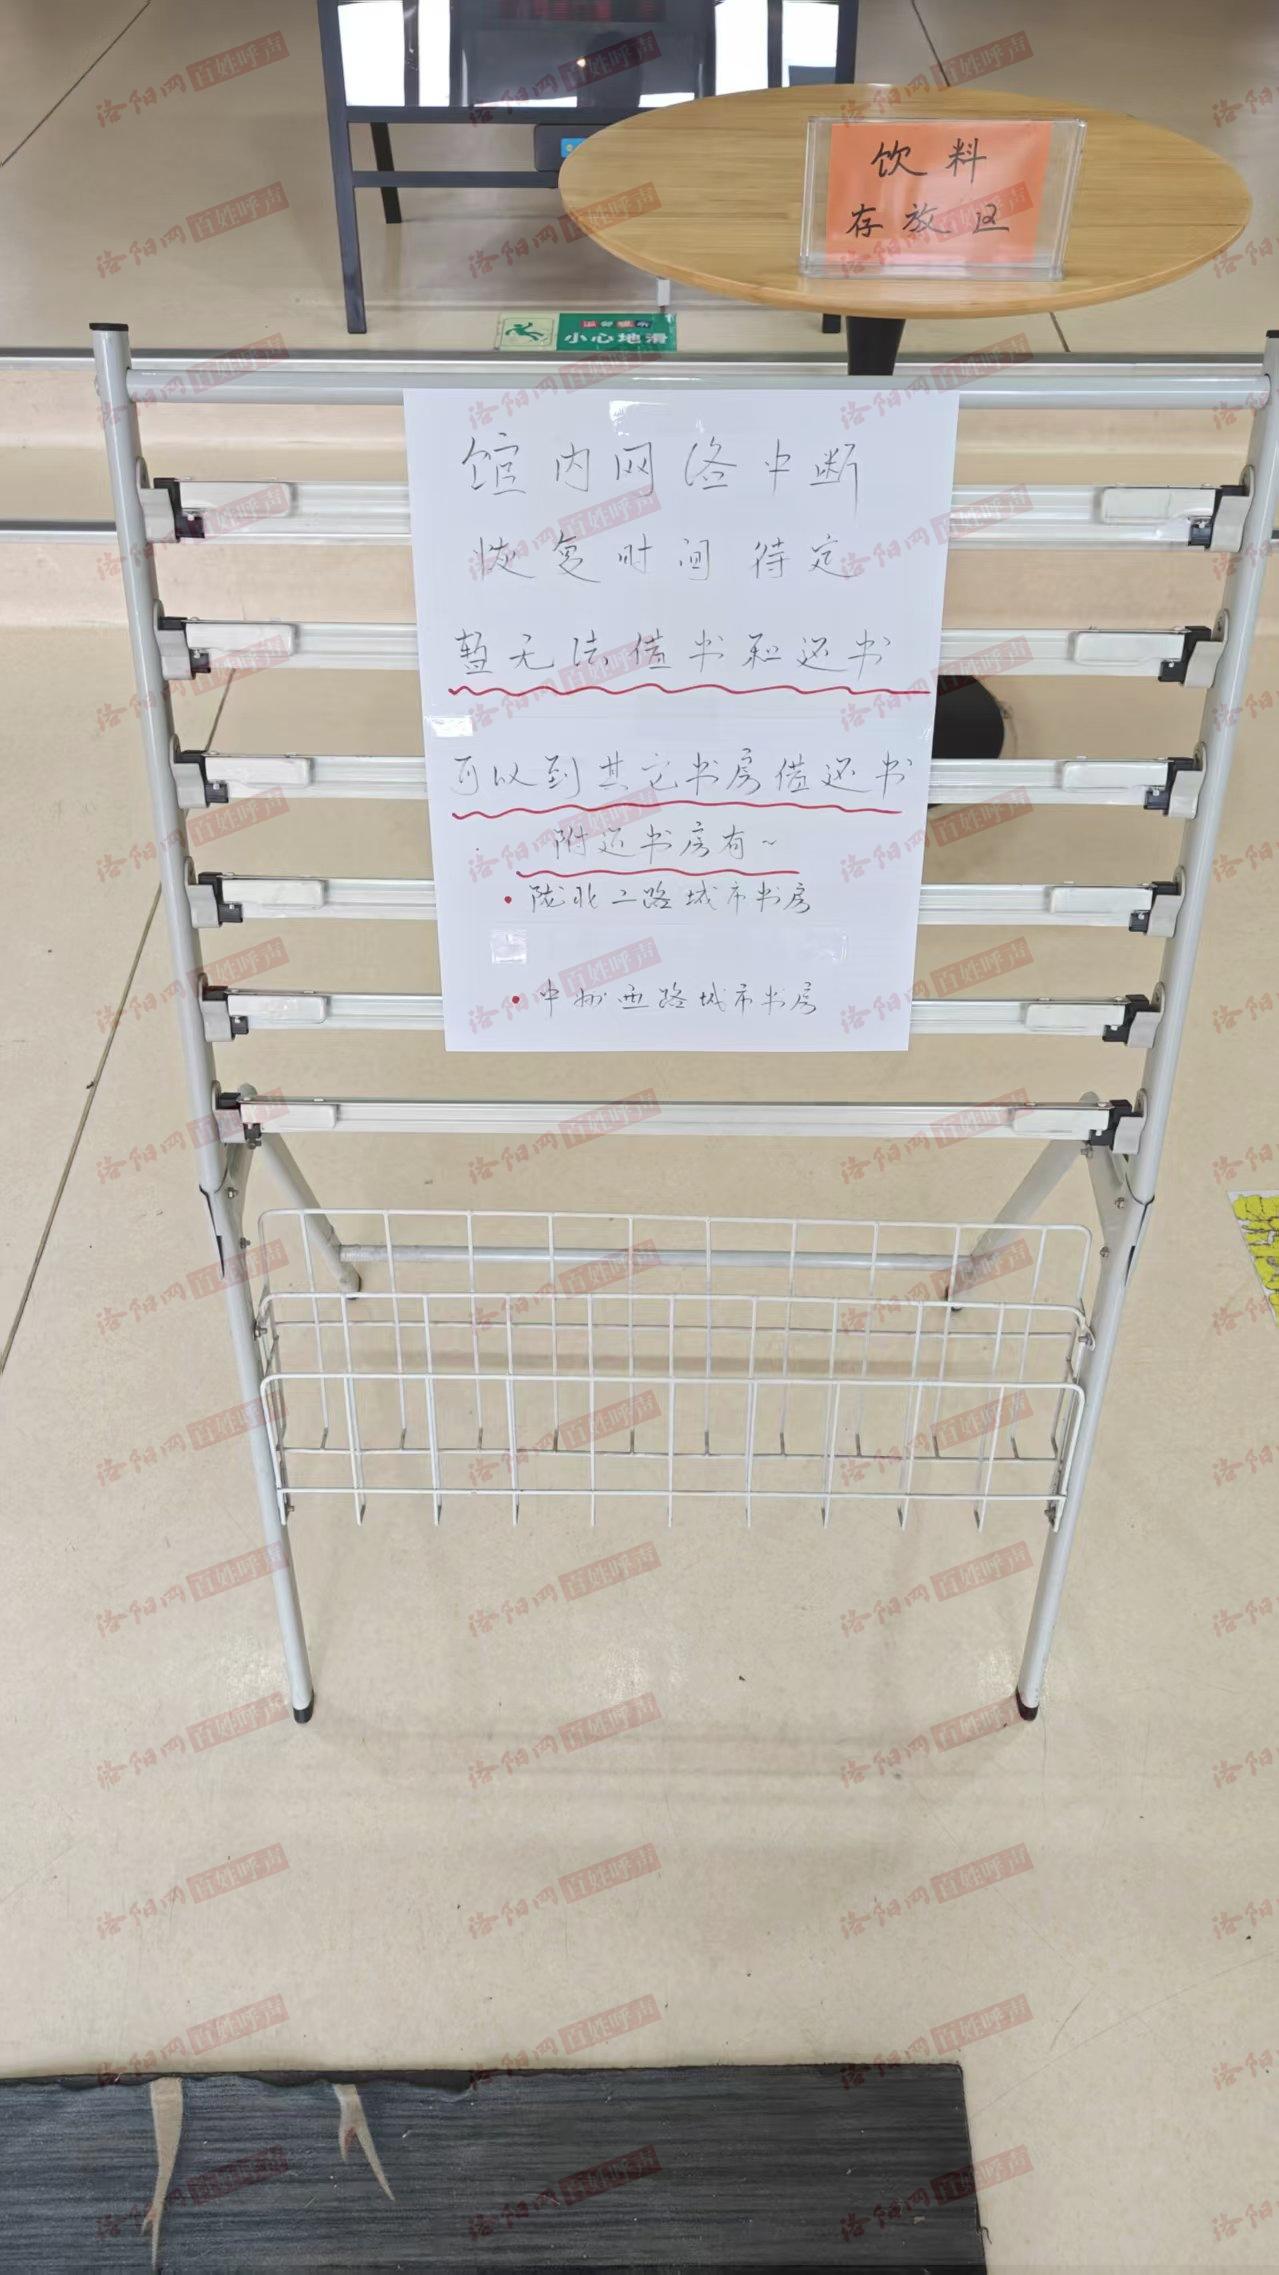 饮料
存放区
温馨提示
小心地滑
馆内网络中断
恢复时间待定
暂无法借书和还书
可以到其它书房借还书
附近书房有~
• 陇北二路城市书房
• 中州西路城市书房
洛阳网 百姓呼声